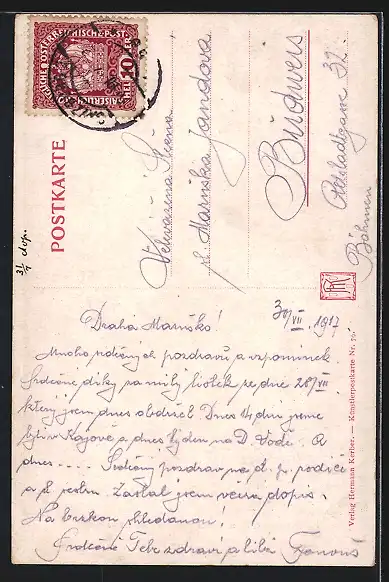 KAISERLICHE KÖNIGLICHE ÖSTERREICHISCHE POST
10
HELLER
POSTKARTE
Velevážená Slečna
sl. Mařenka Jandova
Budweis
Altstadtgasse 32
Böhmen
31/7 dop.
30/VII. 1917
Drahá Mařenko!
Mnoho vděčných pozdravů a vzpomínek.
Srdečné díky za milý lístek ze dne 28/VII
který jsem dnes obdržel. Dnes 14 dní jsme
byli v Kájově a dnes týden na D. Vodě. A
dnes.... Srdečný pozdrav na sl. p. rodiče
a sl. sestru. Zaslal jsem včera dopis.
Na brzkou shledanou!
Srdečně Tebe zdraví a líbá
Verlag Hermann Kerber. — Künstlerpostkarte Nr.